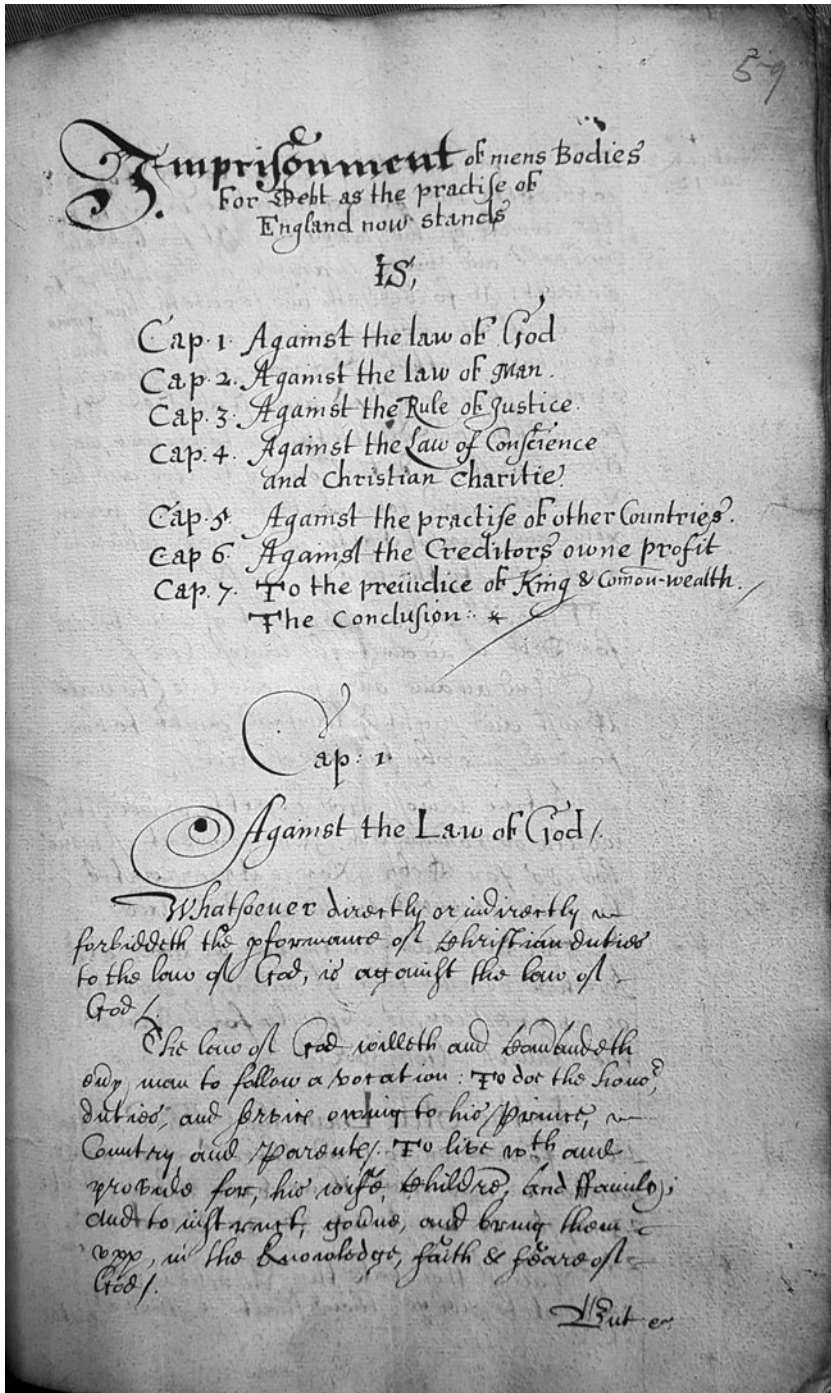 59
Imprisonment of mens Bodies
For Debt as the practise of
England now stands
IS,
Cap. 1. Against the law of God
Cap. 2. Against the law of Man.
Cap. 3. Against the Rule of Justice.
Cap. 4. Against the Law of Conscience
and Christian Charitie.
Cap. 5. Against the practise of other Countries.
Cap 6. Against the Creditors owne profit
Cap. 7. To the preiudice of King & Comon-wealth.
The Conclusion:
Cap: 1.
Against the Law of God /.
Whatsoeuer directly or indirectly
forbiddeth the pformance of Christian duties
to the law of God, is against the law of
God /.
The law of God willeth and comandeth
euy man to follow a vocation: To doe the hono,
duties, and service owing to his Prince,
Country and Parents/. To live wth and
provide for, his wife, Children, and ffamily;
and to instruct, goune, and bring them
vpp, in the knowledge, faith & feare of
God /.
But